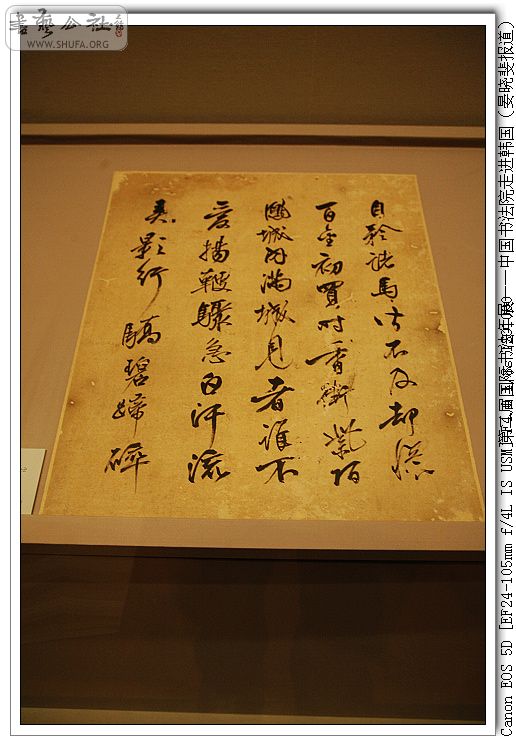 書藝公社
WWW.SHUFA.ORG
自矜諸馬皆不及却憶
百金初買时香街紫陌
鳳城内满城見者誰不
愛揚鞭驟急白汗流
弄影行驕碧蹄碎
Canon EOS 5D [EF24-105mm f/4L IS USM]
国际书法年展——中国书法院走进韩国（晏晓斐报道）